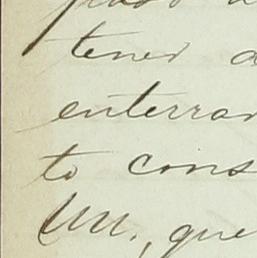 tener a
enterrar
to cons
UU., que